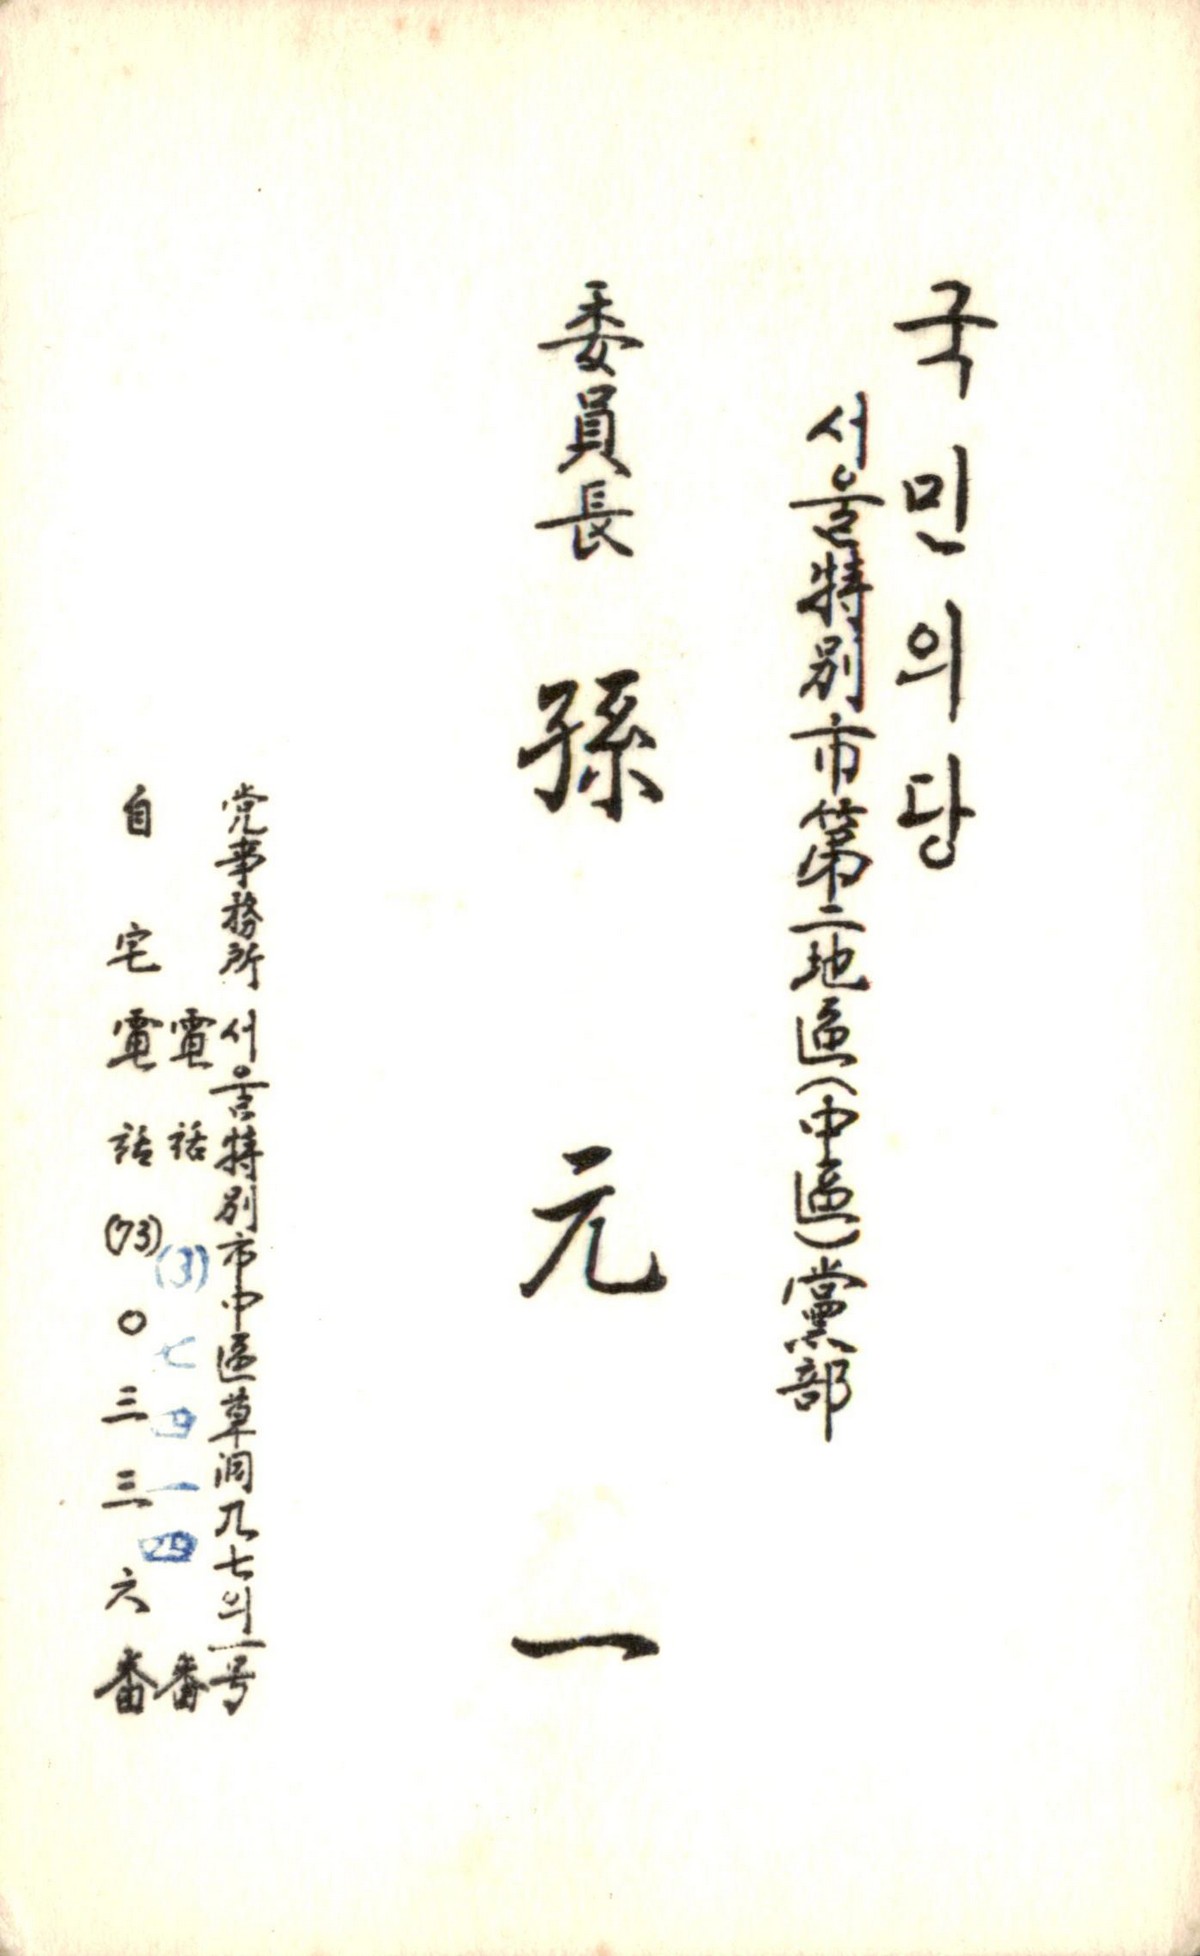 국민의당
서울特別市第二地區(中區)黨部
委員長 孫元一
党事務所 서울特別市中區草洞九七의一号
電話 (3) 七四一四番
自宅 電話 (73) 〇三三六番